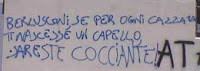 BERLUSCONI, SE PER OGNI CAZZATA
TI NASCESSE UN CAPELLO
SARESTE COCCIANTE!
AT